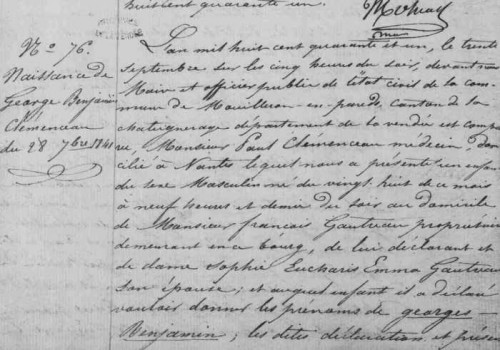 huit cent quarante un.
No 76.
Naissance de
George Benjamin
Clémenceau
du 28 7bre 1841
L'an mil huit cent quarante et un, le trente
Septembre sur les cinq heures du soir, devant nous
Maire et officier public de l'état civil de la com-
mune de Mouilleron-en-pareds, canton de la
chataigneraye département de la vendée est compa
ru, Monsieur Paul Clémenceau médecin domi
cilié à Nantes lequel nous a présenté un enfant
du sexe Masculin né du vingt huit de ce mois
à neuf heures et demie du soir au domicile
de Monsieur françois Gautreau propriétaire
demeurant en ce bourg, de lui déclarant et
de dame Sophie Eucharis Emma Gautreau
son épouse; et auquel enfant il a déclaré
vouloir donner les prénoms de georges -
Benjamin; les dites déclaration et présen